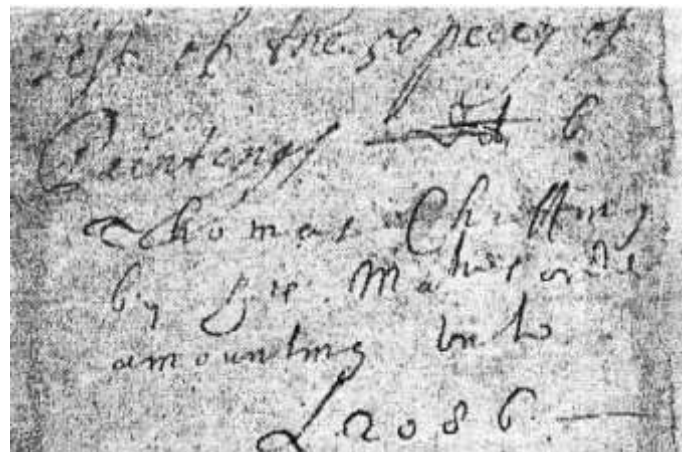 List of the 50 peeces of
Paintings b
Thomas Chiffing
by his Matie's order
amounting unto
L 2086